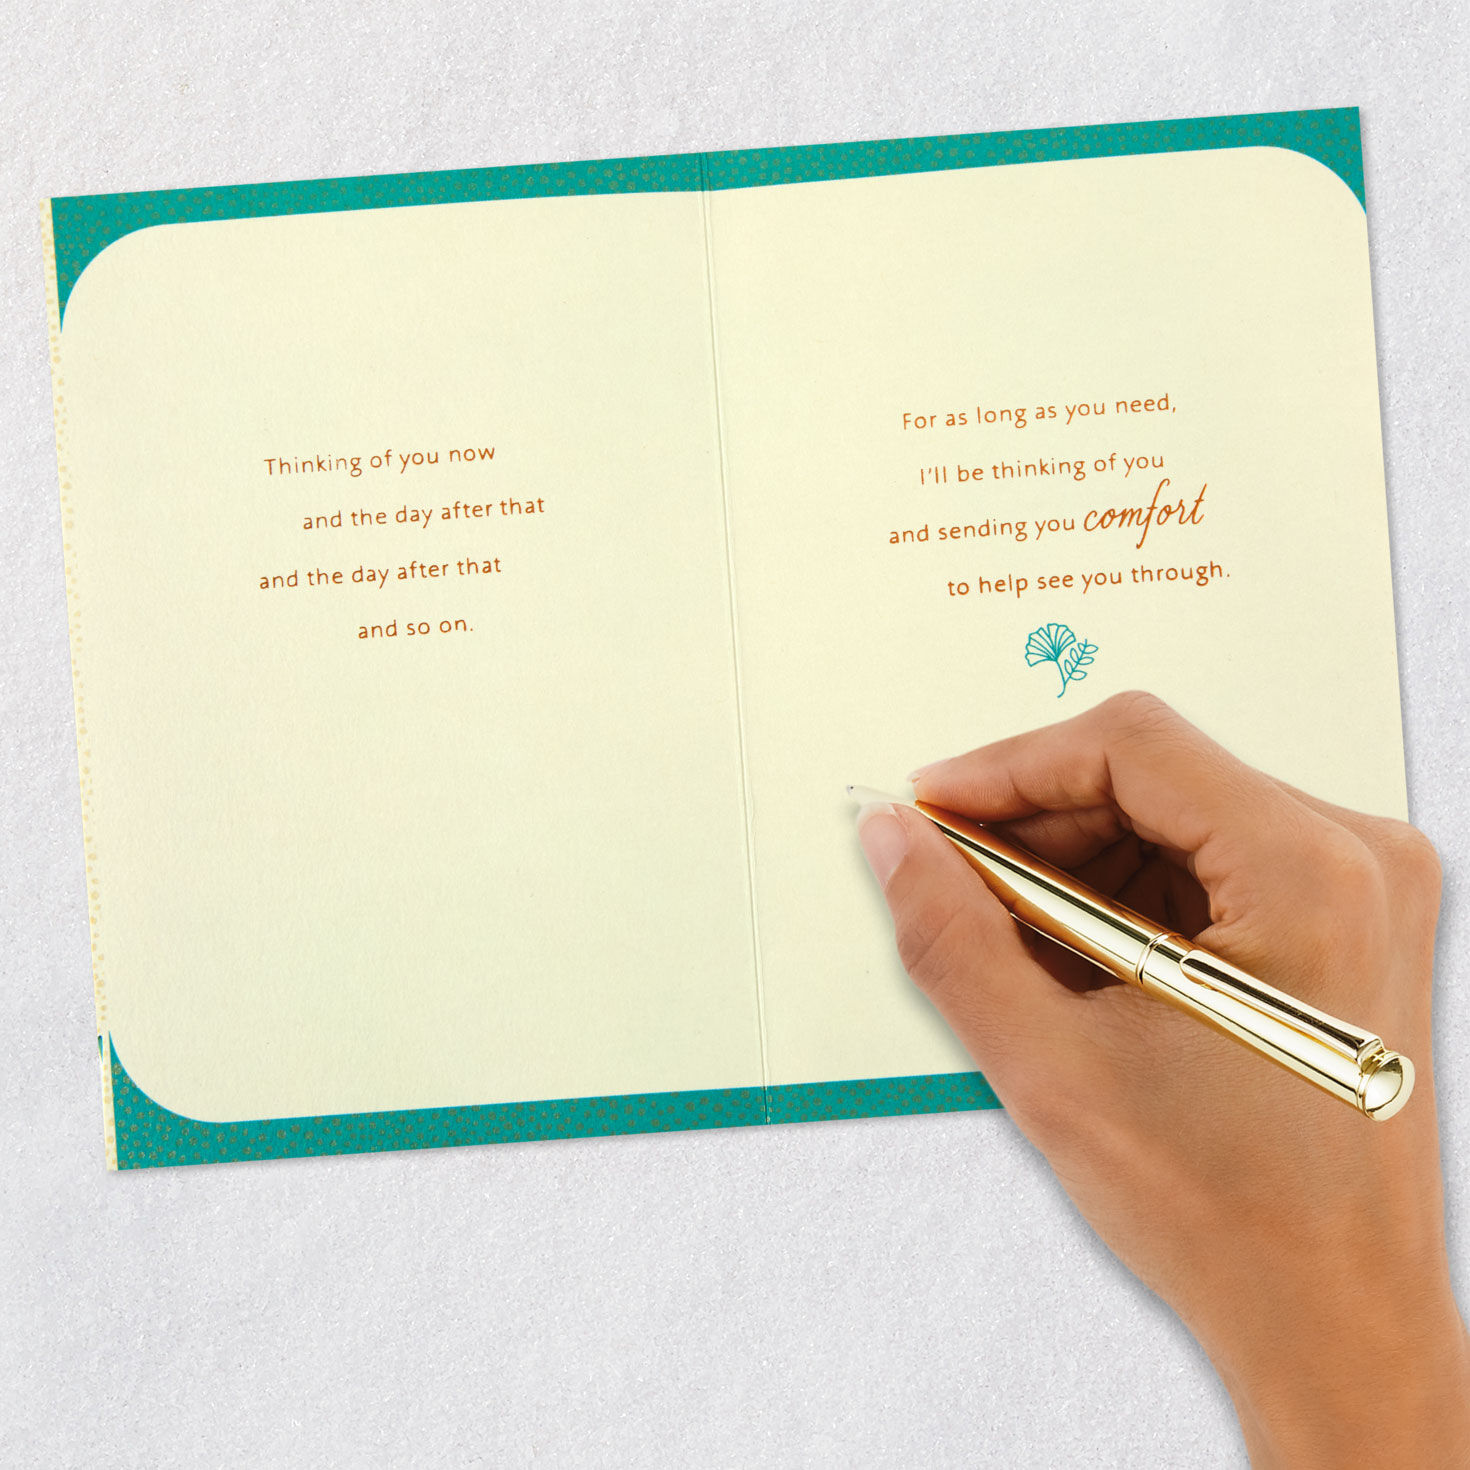 Thinking of you now
and the day after that
and the day after that
and so on.
For as long as you need,
I'll be thinking of you
and sending you comfort
to help see you through.